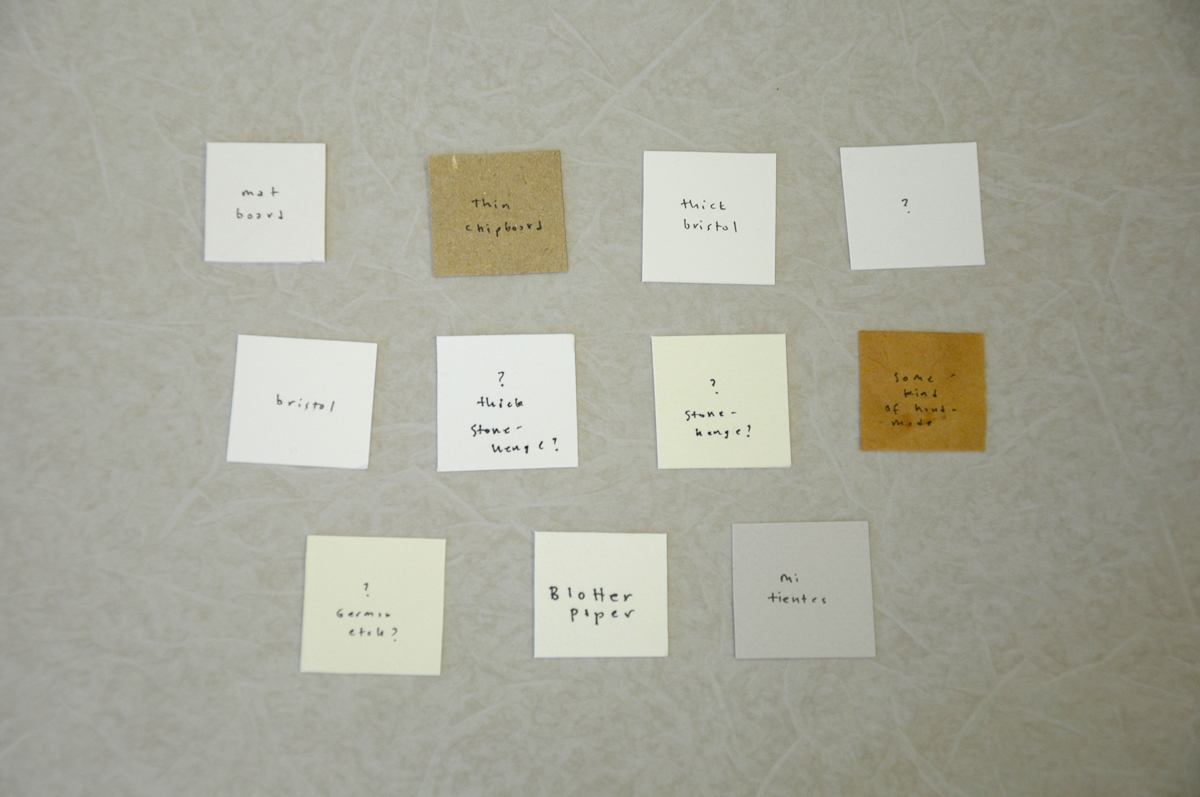 mat
board
thin
chipboard
thick
bristol
?
bristol
?
thick
stone-
henge?
?
stone-
henge?
some
kind
of hand-
made
?
German
etch?
Blotter
paper
mi
tientes